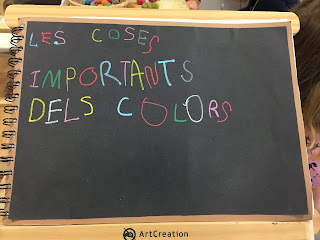 LES COSES
IMPORTANTS
DELS COLORS
ArtCreation